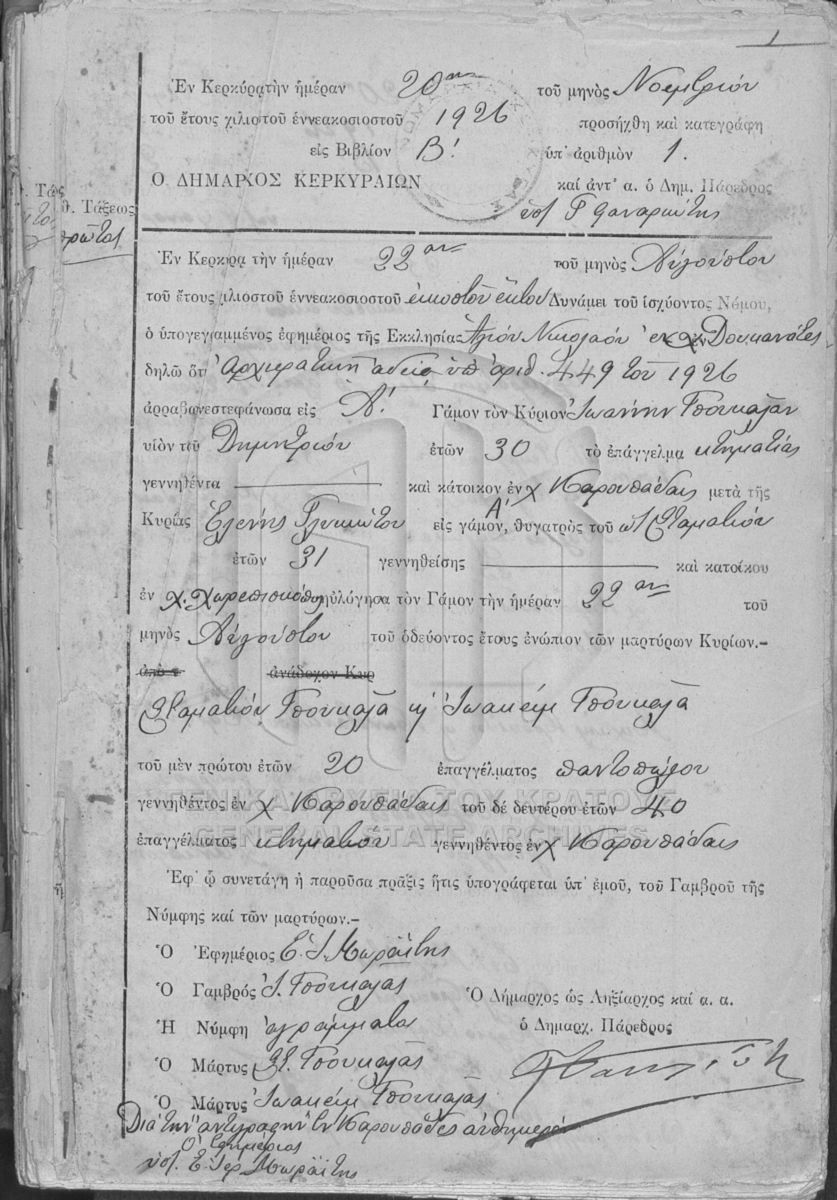 1
Ἐν Κερκύρᾳ τὴν ἡμέραν 20ην τοῦ μηνὸς Νοεμβρίου
τοῦ ἔτους χιλιοστοῦ ἐννεακοσιοστοῦ 1926 προσήχθη καὶ κατεγράφη
εἰς Βιβλίον Β! ὑπ' ἀριθμὸν 1.
Ο ΔΗΜΑΡΧΟΣ ΚΕΡΚΥΡΑΙΩΝ καί ἀντ' α. ὁ Δημ. Πάρεδρος
θ. Τάξεως
Ἐν Κερκύρᾳ τὴν ἡμέραν 22αν τοῦ μηνὸς Αὐγούστου
τοῦ ἔτους χιλιοστοῦ ἐννεακοσιοστοῦ εἰκοστοῦ ἕκτου Δυνάμει τοῦ ἰσχύοντος Νόμου,
ὁ ὑπογεγραμμένος ἐφημέριος τῆς Ἐκκλησίας Ἁγίου Νικολάου ἐκ χ. Δουκανάδες
δηλῶ ὅτι Ἀρχιερατικῇ ἀδείᾳ ὑπ' ἀριθ. 449 τοῦ 1926
ἀρραβωνεστεφάνωσα εἰς Α! Γάμον τὸν Κύριον Ἰωάννην Τσουκαλᾶν
υἱὸν τοῦ Δημητρίου ἐτῶν 30 τὸ ἐπάγγελμα κτηματίας
γεννηθέντα καὶ κάτοικον ἐν χ Καρουσάδες μετὰ τῆς
Κυρίας Ἑλένης Γλυκιώτου εἰς Α' γάμον, θυγατρὸς τοῦ Σταματίου
ἐτῶν 31 γεννηθείσης καὶ κατοίκου
ἐν χ. Χωρεπισκόπους ηὐλόγησα τὸν Γάμον τὴν ἡμέραν 22αν τοῦ
μηνὸς Αὐγούστου τοῦ ὁδεύοντος ἔτους ἐνώπιον τῶν μαρτύρων Κυρίων.-
ἀνάδοχον Κυρ
Σταματίου Τσουκαλᾶ κ Ἰωακεὶμ Τσουκαλᾶ
τοῦ μὲν πρώτου ἐτῶν 20 ἐπαγγέλματος παντοπώλου
γεννηθέντος ἐν χ Καρουσάδες τοῦ δέ δευτέρου ἐτῶν 40
ἐπαγγέλματος κτηματίου γεννηθέντος ἐν χ Καρουσάδες
ΓΕΝΙΚΑ ΑΡΧΕΙΑ ΤΟΥ ΚΡΑΤΟΥΣ
GENERAL STATE ARCHIVES
Ἐφ' ᾧ συνετάγη ἡ παροῦσα πρᾶξις ἥτις ὑπογράφεται ὑπ' ἐμοῦ, τοῦ Γαμβροῦ τῆς
Νύμφης καί τῶν μαρτύρων.-
Ὁ Ἐφημέριος Ε. Ι. Μωραΐτης
Ὁ Γαμβρός Ἰ. Τσουκαλᾶς Ὁ Δήμαρχος ὡς Ληξίαρχος καί α. α.
Ἡ Νύμφη ἀγράμματος ὁ Δημαρχ. Πάρεδρος
Ὁ Μάρτυς Στ. Τσουκαλᾶς
Ὁ Μάρτυς Ἰωακεὶμ Τσουκαλᾶς
Διὰ τὴν ἀντιγραφὴν ἐν Καρουσάδες αὐθημερόν
Ὁ Ἐφημέριος
ὑπ. Ε. Ἱερ Μωραΐτης